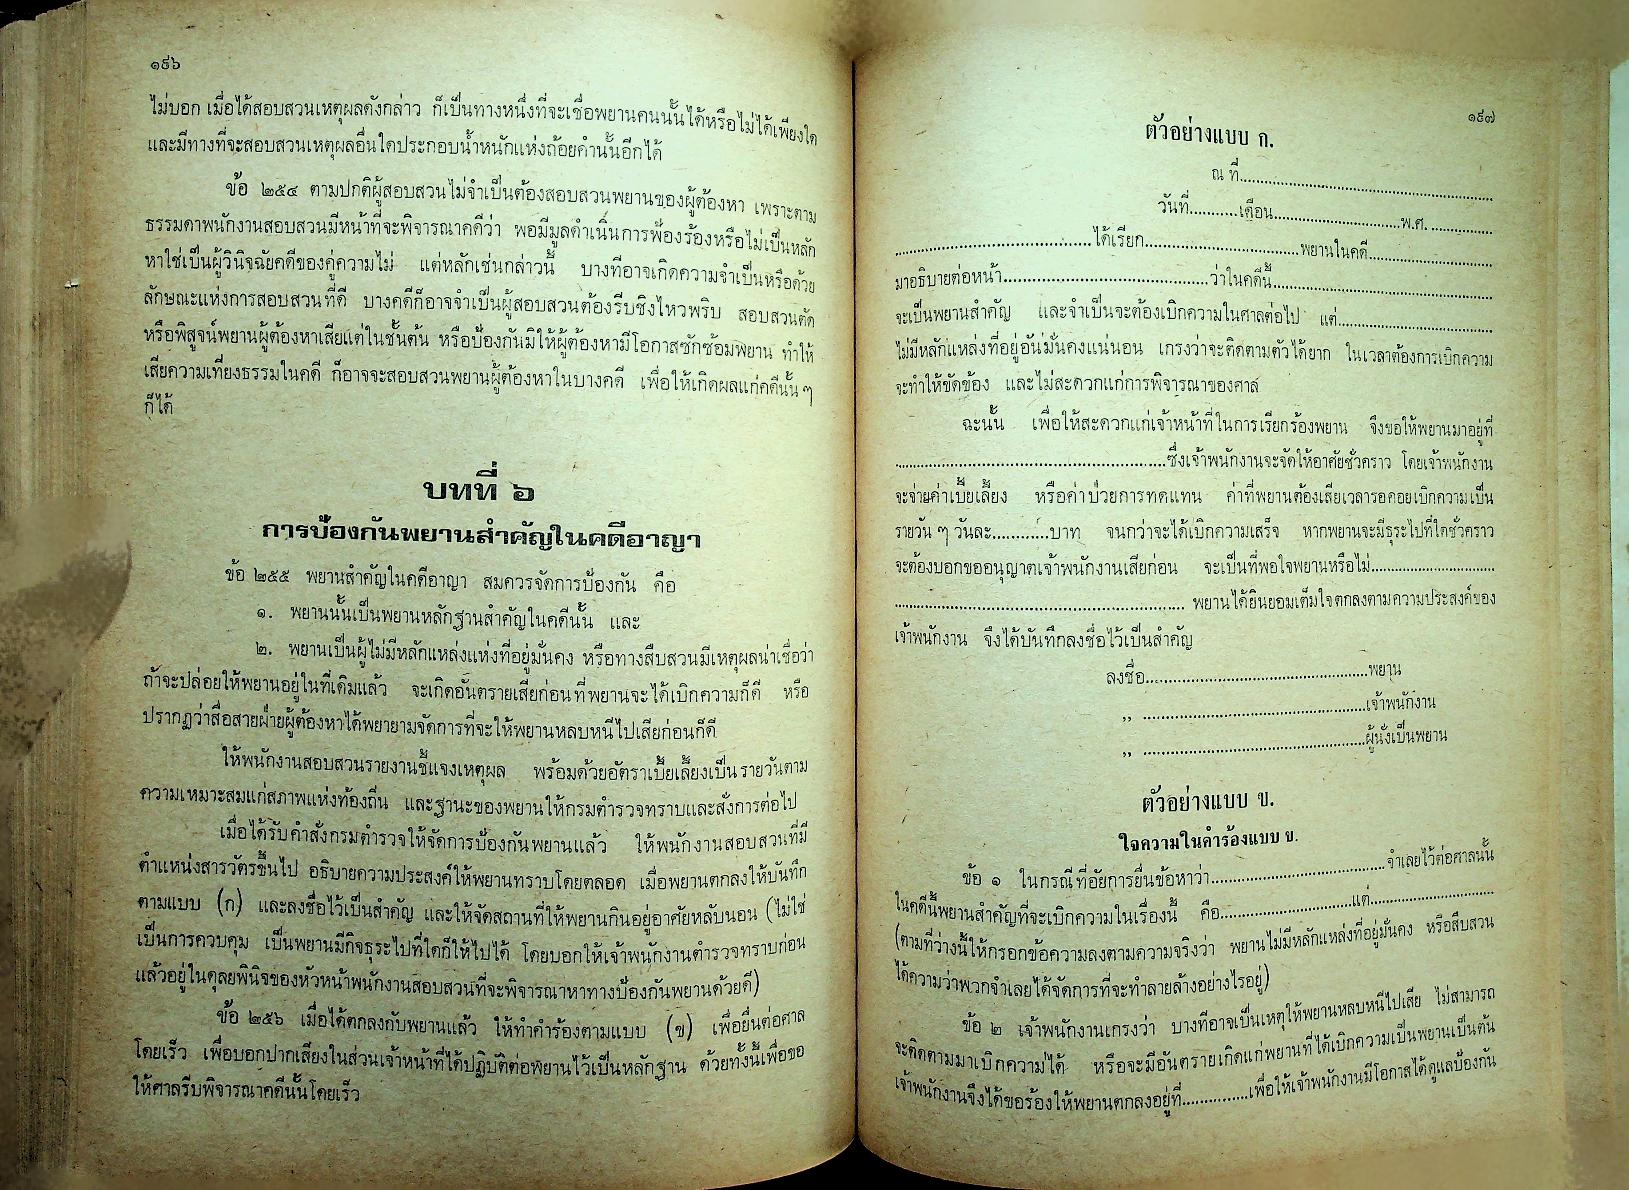 ๑๙๖
ไม่บอก เมื่อได้สอบสวนเหตุผลดังกล่าว ก็เป็นทางหนึ่งที่จะเชื่อพยานคนนั้นได้หรือไม่ได้เพียงใด
และมีทางที่จะสอบสวนเหตุผลอื่นใดประกอบน้ำหนักแห่งถ้อยคำนั้นอีกได้
ข้อ ๒๕๔ ตามปกติผู้สอบสวนไม่จำเป็นต้องสอบสวนพยานของผู้ต้องหา เพราะตาม
ธรรมดาพนักงานสอบสวนมีหน้าที่จะพิจารณาคดีว่า พอมีมูลดำเนินการฟ้องร้องหรือไม่เป็นหลัก
หาใช่เป็นผู้วินิจฉัยคดีของคู่ความไม่ แต่หลักเช่นกล่าวนี้ บางทีอาจเกิดความจำเป็นหรือด้วย
ลักษณะแห่งการสอบสวนที่ดี บางคดีก็อาจจำเป็นผู้สอบสวนต้องรีบชิงไหวพริบ สอบสวนตัด
หรือพิสูจน์พยานผู้ต้องหาเสียแต่ในชั้นต้น หรือป้องกันมิให้ผู้ต้องหามีโอกาสซักซ้อมพยาน ทำให้
เสียความเที่ยงธรรมในคดี ก็อาจจะสอบสวนพยานผู้ต้องหาในบางคดี เพื่อให้เกิดผลแก่คดีนั้น ๆ
ก็ได้
บทที่ ๖
การป้องกันพยานสำคัญในคดีอาญา
ข้อ ๒๕๕ พยานสำคัญในคดีอาญา สมควรจัดการป้องกัน คือ
๑. พยานนั้นเป็นพยานหลักฐานสำคัญในคดีนั้น และ
๒. พยานเป็นผู้ไม่มีหลักแหล่งแห่งที่อยู่มั่นคง หรือทางสืบสวนมีเหตุผลน่าเชื่อว่า
ถ้าจะปล่อยให้พยานอยู่ในที่เดิมแล้ว จะเกิดอันตรายเสียก่อนที่พยานจะได้เบิกความก็ดี หรือ
ปรากฏว่าสื่อสายฝ่ายผู้ต้องหาได้พยายามจัดการที่จะให้พยานหลบหนีไปเสียก่อนก็ดี
ให้พนักงานสอบสวนรายงานชี้แจงเหตุผล พร้อมด้วยอัตราเบี้ยเลี้ยงเป็นรายวันตาม
ความเหมาะสมแก่สภาพแห่งท้องถิ่น และฐานะของพยานให้กรมตำรวจทราบและสั่งการต่อไป
เมื่อได้รับคำสั่งกรมตำรวจให้จัดการป้องกันพยานแล้ว ให้พนักงานสอบสวนที่มี
ตำแหน่งสารวัตรขึ้นไป อธิบายความประสงค์ให้พยานทราบโดยตลอด เมื่อพยานตกลงให้บันทึก
ตามแบบ (ก) และลงชื่อไว้เป็นสำคัญ และให้จัดสถานที่ให้พยานกินอยู่อาศัยหลับนอน (ไม่ใช่
เป็นการควบคุม เป็นพยานมีกิจธุระไปที่ใดก็ให้ไปได้ โดยบอกให้เจ้าพนักงานตำรวจทราบก่อน
แล้วอยู่ในดุลยพินิจของหัวหน้าพนักงานสอบสวนที่จะพิจารณาหาทางป้องกันพยานด้วยดี)
ข้อ ๒๕๖ เมื่อได้ตกลงกับพยานแล้ว ให้ทำคำร้องตามแบบ (ข) เพื่อยื่นต่อศาล
โดยเร็ว เพื่อบอกปากเสียงในส่วนเจ้าหน้าที่ได้ปฏิบัติต่อพยานไว้เป็นหลักฐาน ด้วยทั้งนี้เพื่อขอ
ให้ศาลรีบพิจารณาคดีนั้นโดยเร็ว
๑๙๗
ตัวอย่างแบบ ก.
ณ ที่..........................................
วันที่...........เดือน............................พ.ศ. ..............
...........................................ได้เรียก..................................พยานในคดี...........................
มาอธิบายต่อหน้า.............................................ว่าในคดีนี้................................................
จะเป็นพยานสำคัญ และจำเป็นจะต้องเบิกความในศาลต่อไป แต่..................................
ไม่มีหลักแหล่งที่อยู่อันมั่นคงแน่นอน เกรงว่าจะติดตามตัวได้ยาก ในเวลาต้องการเบิกความ
จะทำให้ขัดข้อง และไม่สะดวกแก่การพิจารณาของศาล
ฉะนั้น เพื่อให้สะดวกแก่เจ้าหน้าที่ในการเรียกร้องพยาน จึงขอให้พยานมาอยู่ที่
............................................................ซึ่งเจ้าพนักงานจะจัดให้อาศัยชั่วคราว โดยเจ้าพนักงาน
จะจ่ายค่าเบี้ยเลี้ยง หรือค่าป่วยการทดแทน ค่าที่พยานต้องเสียเวลารอคอยเบิกความเป็น
รายวัน ๆ วันละ............บาท จนกว่าจะได้เบิกความเสร็จ หากพยานจะมีธุระไปที่ใดชั่วคราว
จะต้องบอกขออนุญาตเจ้าพนักงานเสียก่อน จะเป็นที่พอใจพยานหรือไม่...........................
................................................................ พยานได้ยินยอมเต็มใจตกลงตามความประสงค์ของ
เจ้าพนักงาน จึงได้บันทึกลงชื่อไว้เป็นสำคัญ
ลงชื่อ..................................................พยาน
,, ..................................................เจ้าพนักงาน
,, ..................................................ผู้นั่งเป็นพยาน
ตัวอย่างแบบ ข.
ใจความในคำร้องแบบ ข.
ข้อ ๑ ในกรณีที่อัยการยื่นข้อหาว่า......................................จำเลยไว้ต่อศาลนั้น
ในคดีนี้พยานสำคัญที่จะเบิกความในเรื่องนี้ คือ............................แต่...........................
(ตามที่ว่างนี้ให้กรอกข้อความลงตามความจริงว่า พยานไม่มีหลักแหล่งที่อยู่มั่นคง หรือสืบสวน
ได้ความว่าพวกจำเลยได้จัดการที่จะทำลายล้างอย่างไรอยู่)
ข้อ ๒ เจ้าพนักงานเกรงว่า บางทีอาจเป็นเหตุให้พยานหลบหนีไปเสีย ไม่สามารถ
จะติดตามมาเบิกความได้ หรือจะมีอันตรายเกิดแก่พยานที่ได้เบิกความเป็นพยานเป็นต้น
เจ้าพนักงานจึงได้ขอร้องให้พยานตกลงอยู่ที่...............เพื่อให้เจ้าพนักงานมีโอกาสได้ดูแลป้องกัน